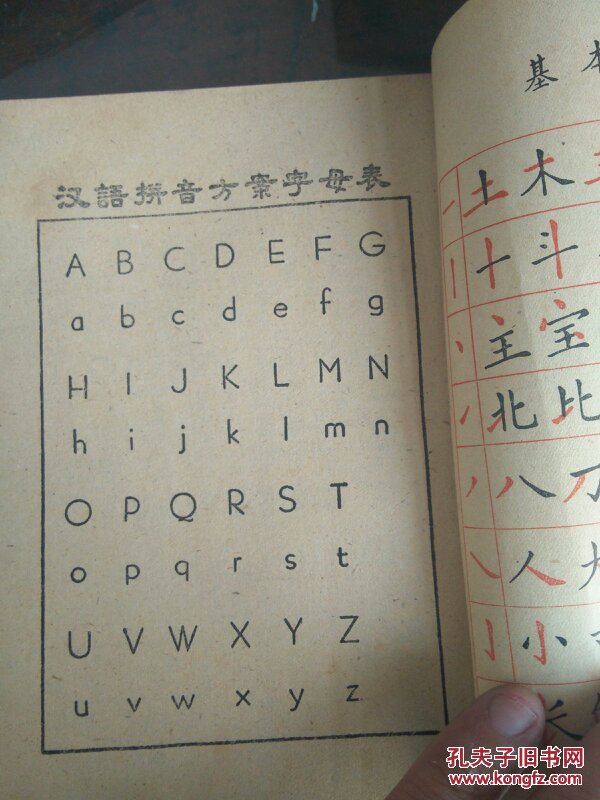 汉語拼音方案字母表
A B C D E F G
a b c d e f g
H I J K L M N
h i j k l m n
O P Q R S T
o p q r s t
U V W X Y Z
u v w x y z
基本
土木
十斗
主宝
北比
八刀
人
小
长
孔夫子旧书网
www.kongfz.com